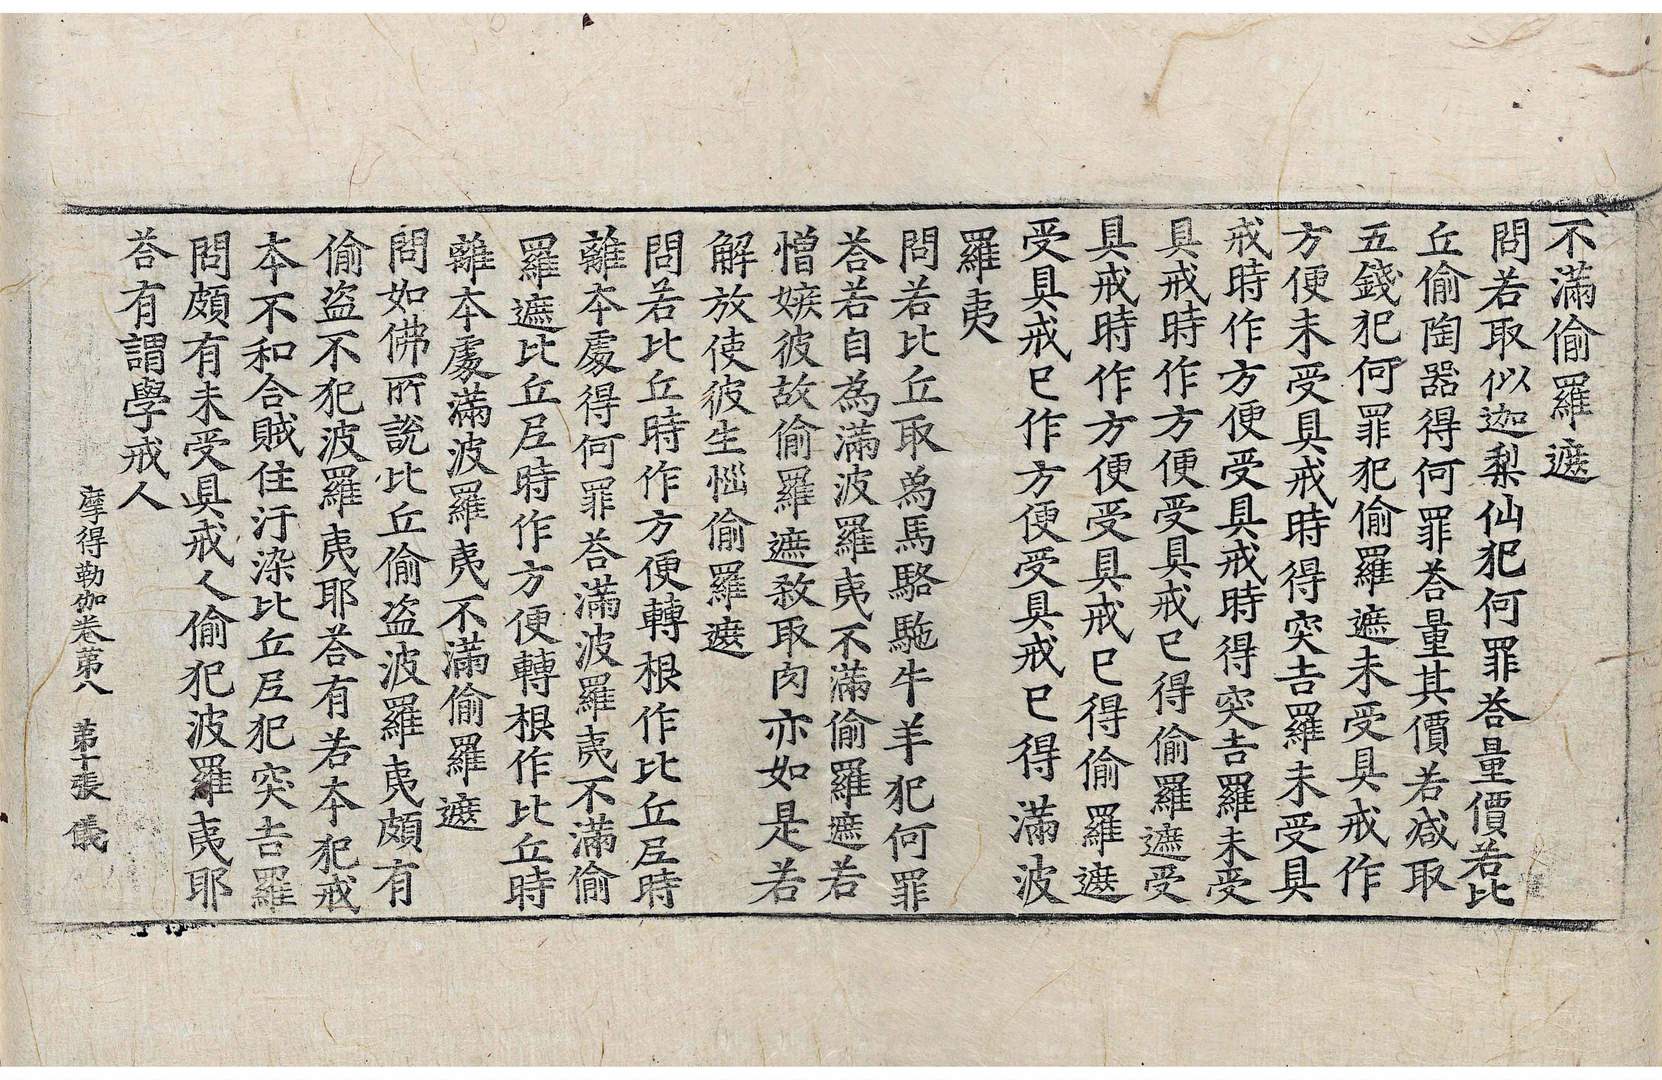 不滿偷羅遮
問若取似迦梨仙犯何罪荅量價若比
丘偷陶器得何罪荅量其價若減取
五錢犯何罪犯偷羅遮未受具戒作
方便未受具戒時得突吉羅未受具
戒時作方便受具戒時得突吉羅未受
具戒時作方便受具戒已得偷羅遮受
具戒時作方便受具戒已得偷羅遮
受具戒已作方便受具戒已得滿波
羅夷
問若比丘取為馬駱駞牛羊犯何罪
荅若自為滿波羅夷不滿偷羅遮若
憎嫉彼故偷羅遮敎取肉亦如是若
解放使彼生惱偷羅遮
問若比丘時作方便轉根作比丘尼時
離本處得何罪荅滿波羅夷不滿偷
羅遮比丘尼時作方便轉根作比丘時
離本處滿波羅夷不滿偷羅遮
問如佛所說比丘偷盜波羅夷頗有
偷盜不犯波羅夷耶荅有若本犯戒
本不和合賊住汙染比丘尼犯突吉羅
問頗有未受具戒人偷犯波羅夷耶
荅有謂學戒人
摩得勒伽卷第八 第十張 儀